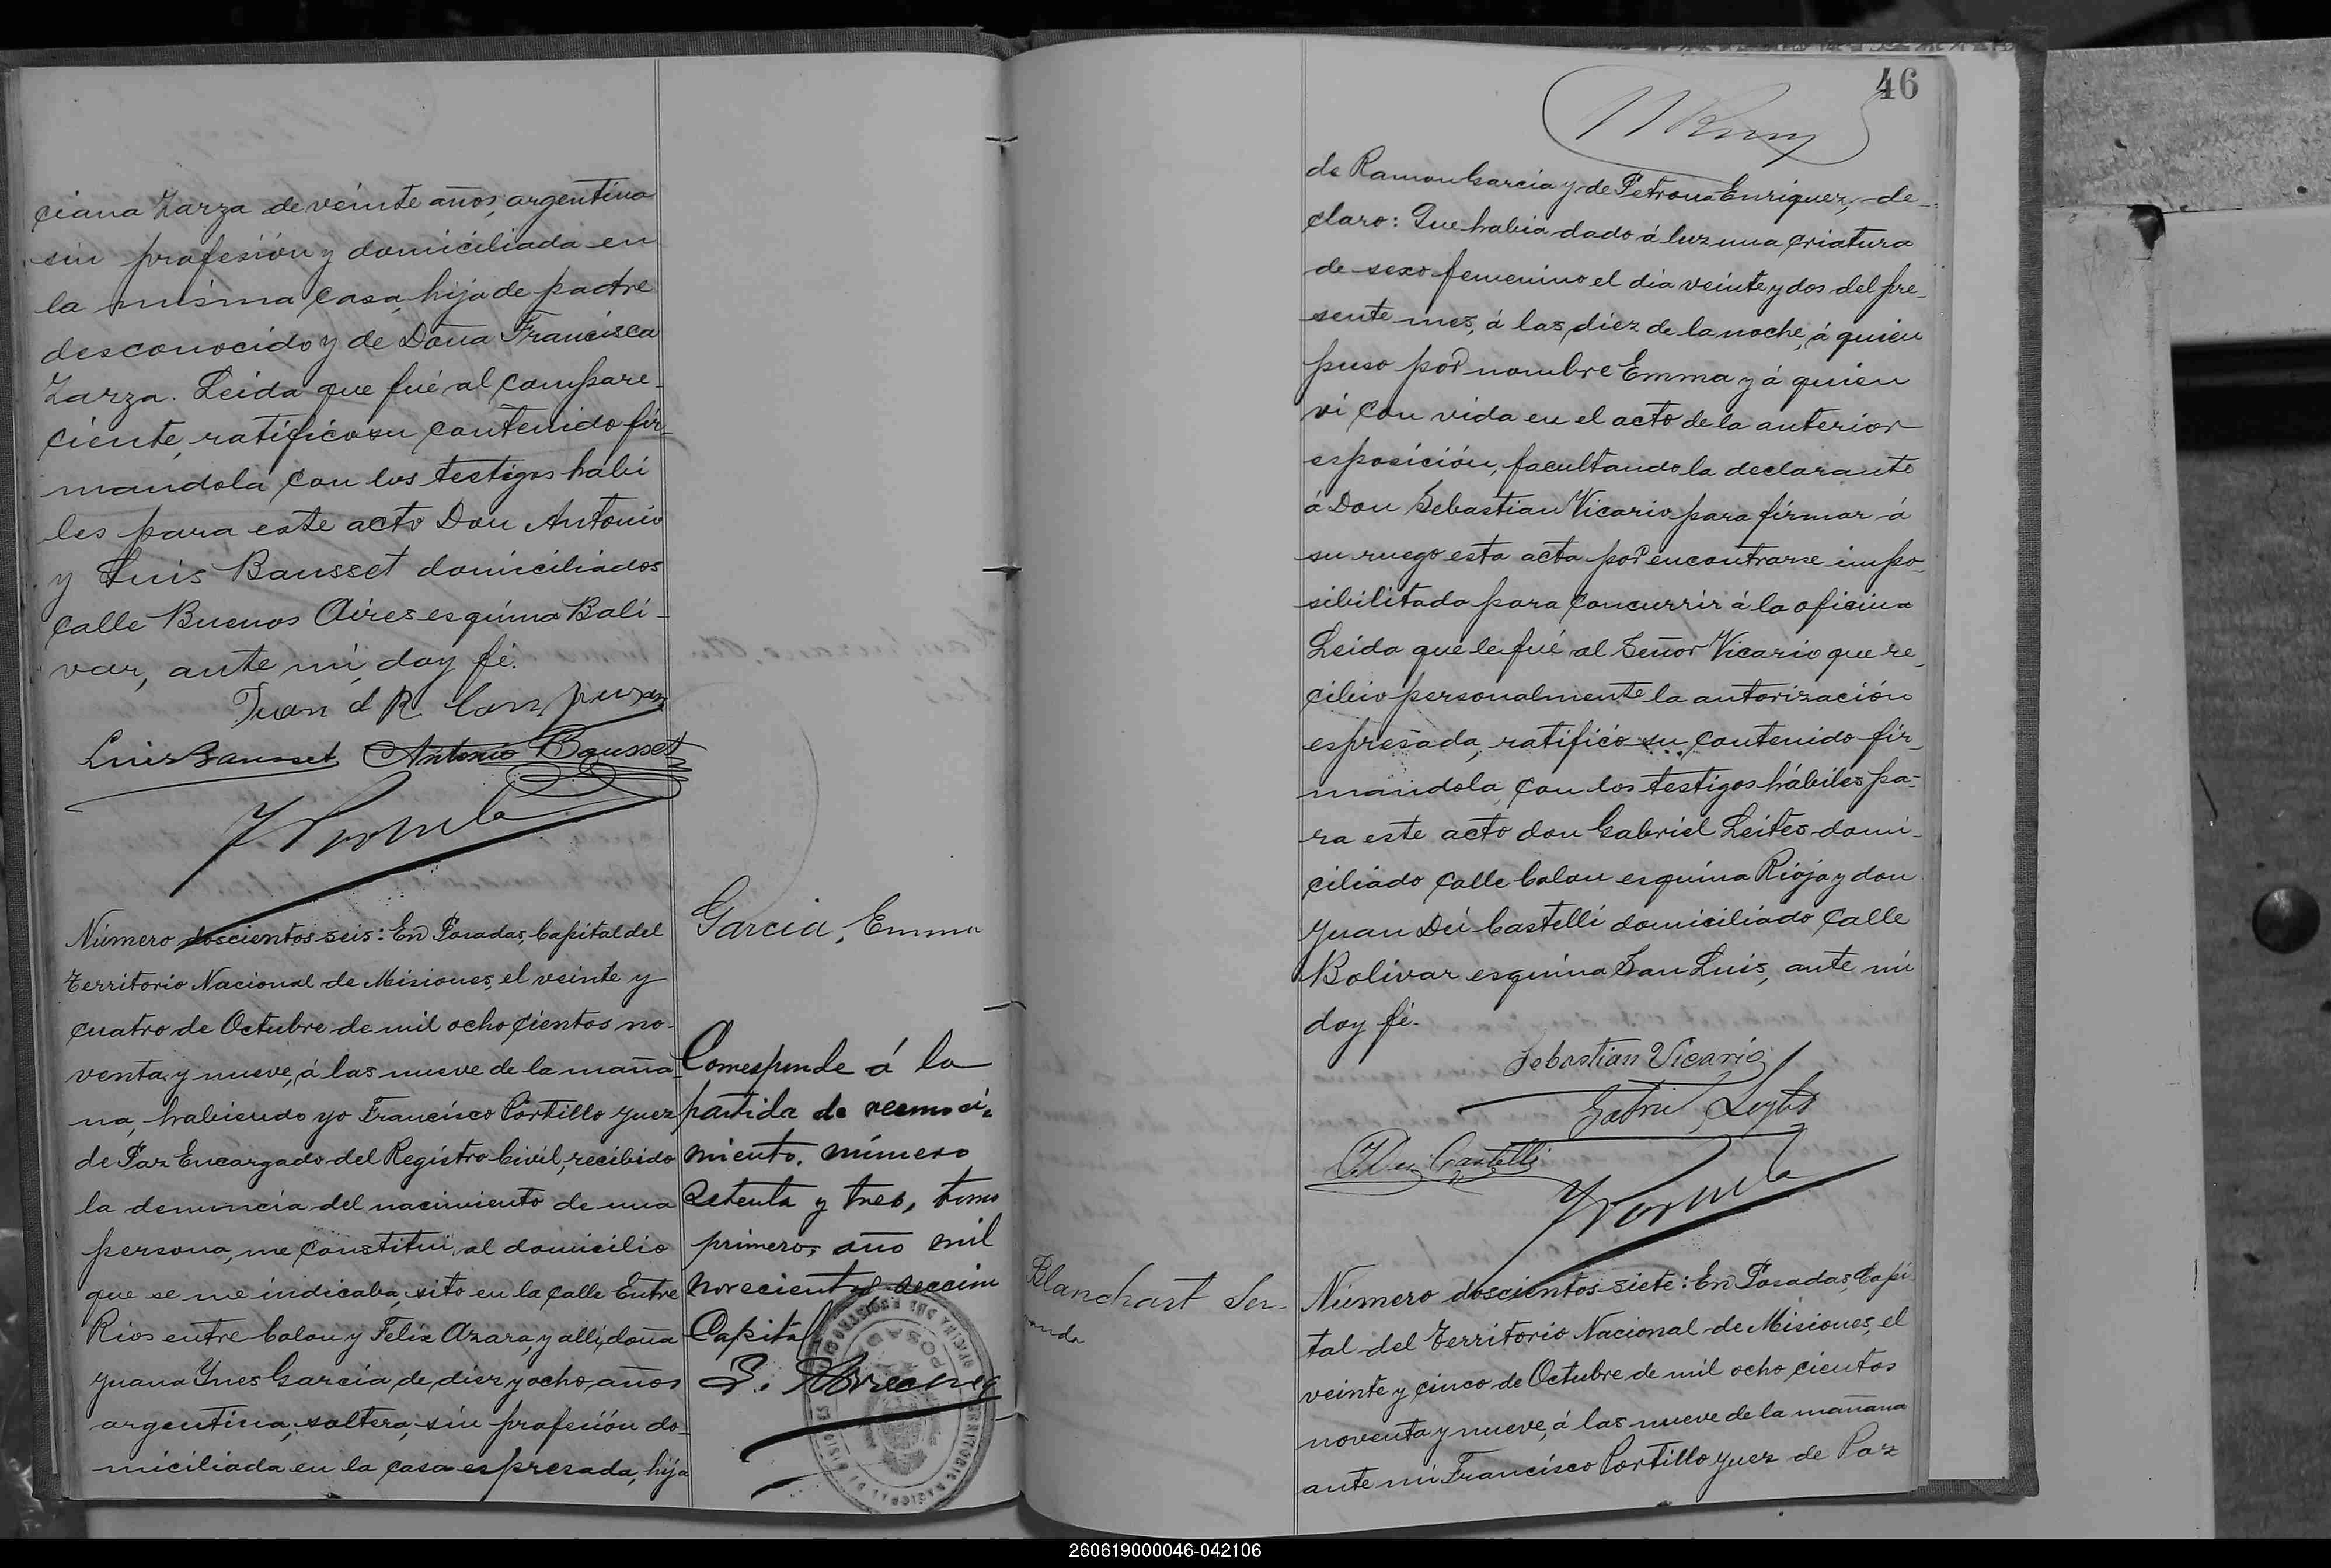 ciana Zarza de veinte años, argentina
sin profesión y domiciliada en
la misma casa, hija de padre
desconocido y de Doña Francisca
Zarza. Leida que fué al compare-
ciente, ratifico su contenido fir-
mandola con los testigos habi
les para este acto Don Antonio
y Luis Bausset domiciliados
calle Buenos Aires esquina Boli-
var, ante mi, doy fé.
Juan d R
Luis Bausset Antonio Bausset
Número doscientos seis: En Posadas, Capital del
Territorio Nacional de Misiones, el veinte y
cuatro de Octubre de mil ocho cientos no-
venta y nueve, á las nueve de la maña
na, habiendo yo Francisco Portillo Juez
de Paz Encargado del Registro Civil, recibido
la denuncia del nacimiento de una
persona, me constitui al domicilio
que se me indicaba, sito en la calle Entre
Rios entre Colon y Felix Azara, y alli, doña
Juana Ynes Garcia de diez y ocho años
argentina, soltera, sin profesión do-
miciliada en la casa espresada, hija
Garcia, Emma
Corresponde á la
partida de reconoci-
miento, número
setenta y tres, tomo
primero, año mil
novecientos seccion
Capital
46
de Ramon Garcia y de Petrona Enriquez, de-
claro: Que habia dado á luz una criatura
de sexo femenino el dia veinte y dos del pre-
sente mes, á las diez de la noche, á quien
puso por nombre Emma y á quien
vi con vida en el acto de la anterior
esposición, facultando la declarante
á Don Sebastian Vicario para firmar á
su ruego esta acta por encontrarse impo-
sibilitada para concurrir á la oficina
Leida que le fué al Señor Vicario que re-
cibio personalmente la autorización
espresada, ratificó su contenido fir-
mandola, con los testigos hábiles pa-
ra este acto don Gabriel Leites domi-
ciliado calle Colon esquina Rioja y don
Juan Dei Castelli domiciliado calle
Bolivar esquina San Luis, ante mi
doy fé.
Sebastian Vicario
Gabriel Leytes
J Dei Castelli
Blanchart
Número doscientos siete: En Posadas, Capi-
tal del Territorio Nacional de Misiones, el
veinte y cinco de Octubre de mil ocho cientos
noventa y nueve, á las nueve de la mañana
ante mi Francisco Portillo Juez de Paz
260619000046-042106